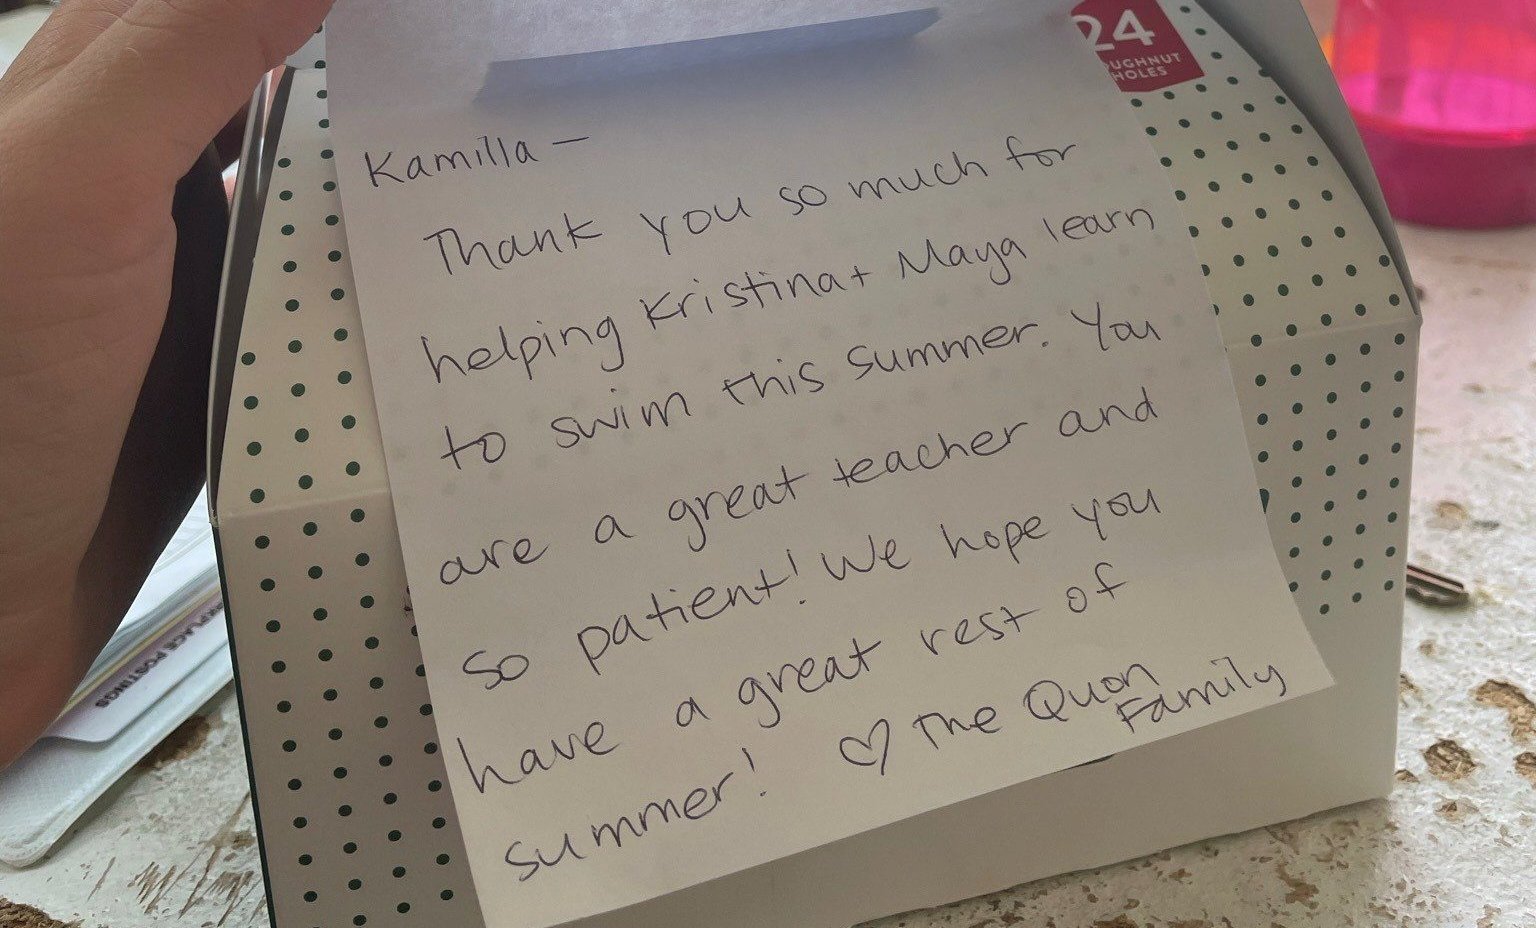 24
UGHNUT
HOLES
Kamilla —
Thank you so much for
helping Kristina + Maya learn
to swim this summer. You
are a great teacher and
so patient! We hope you
have a great rest of
summer! ♡ The Quon
Family
RKPLACE POSTINGS